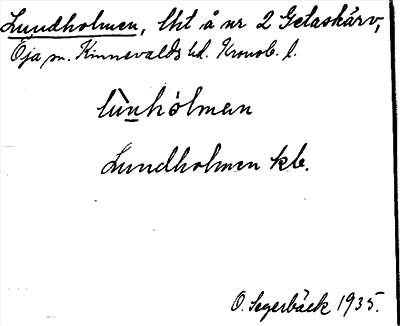 Lundholmen, lht å nr 2 Getaskärv,
Öja sn. Kinnevalds hd. Kronob. l.
lùnhòlmen
Lundholmen kb.
O. Segerbäck 1935.